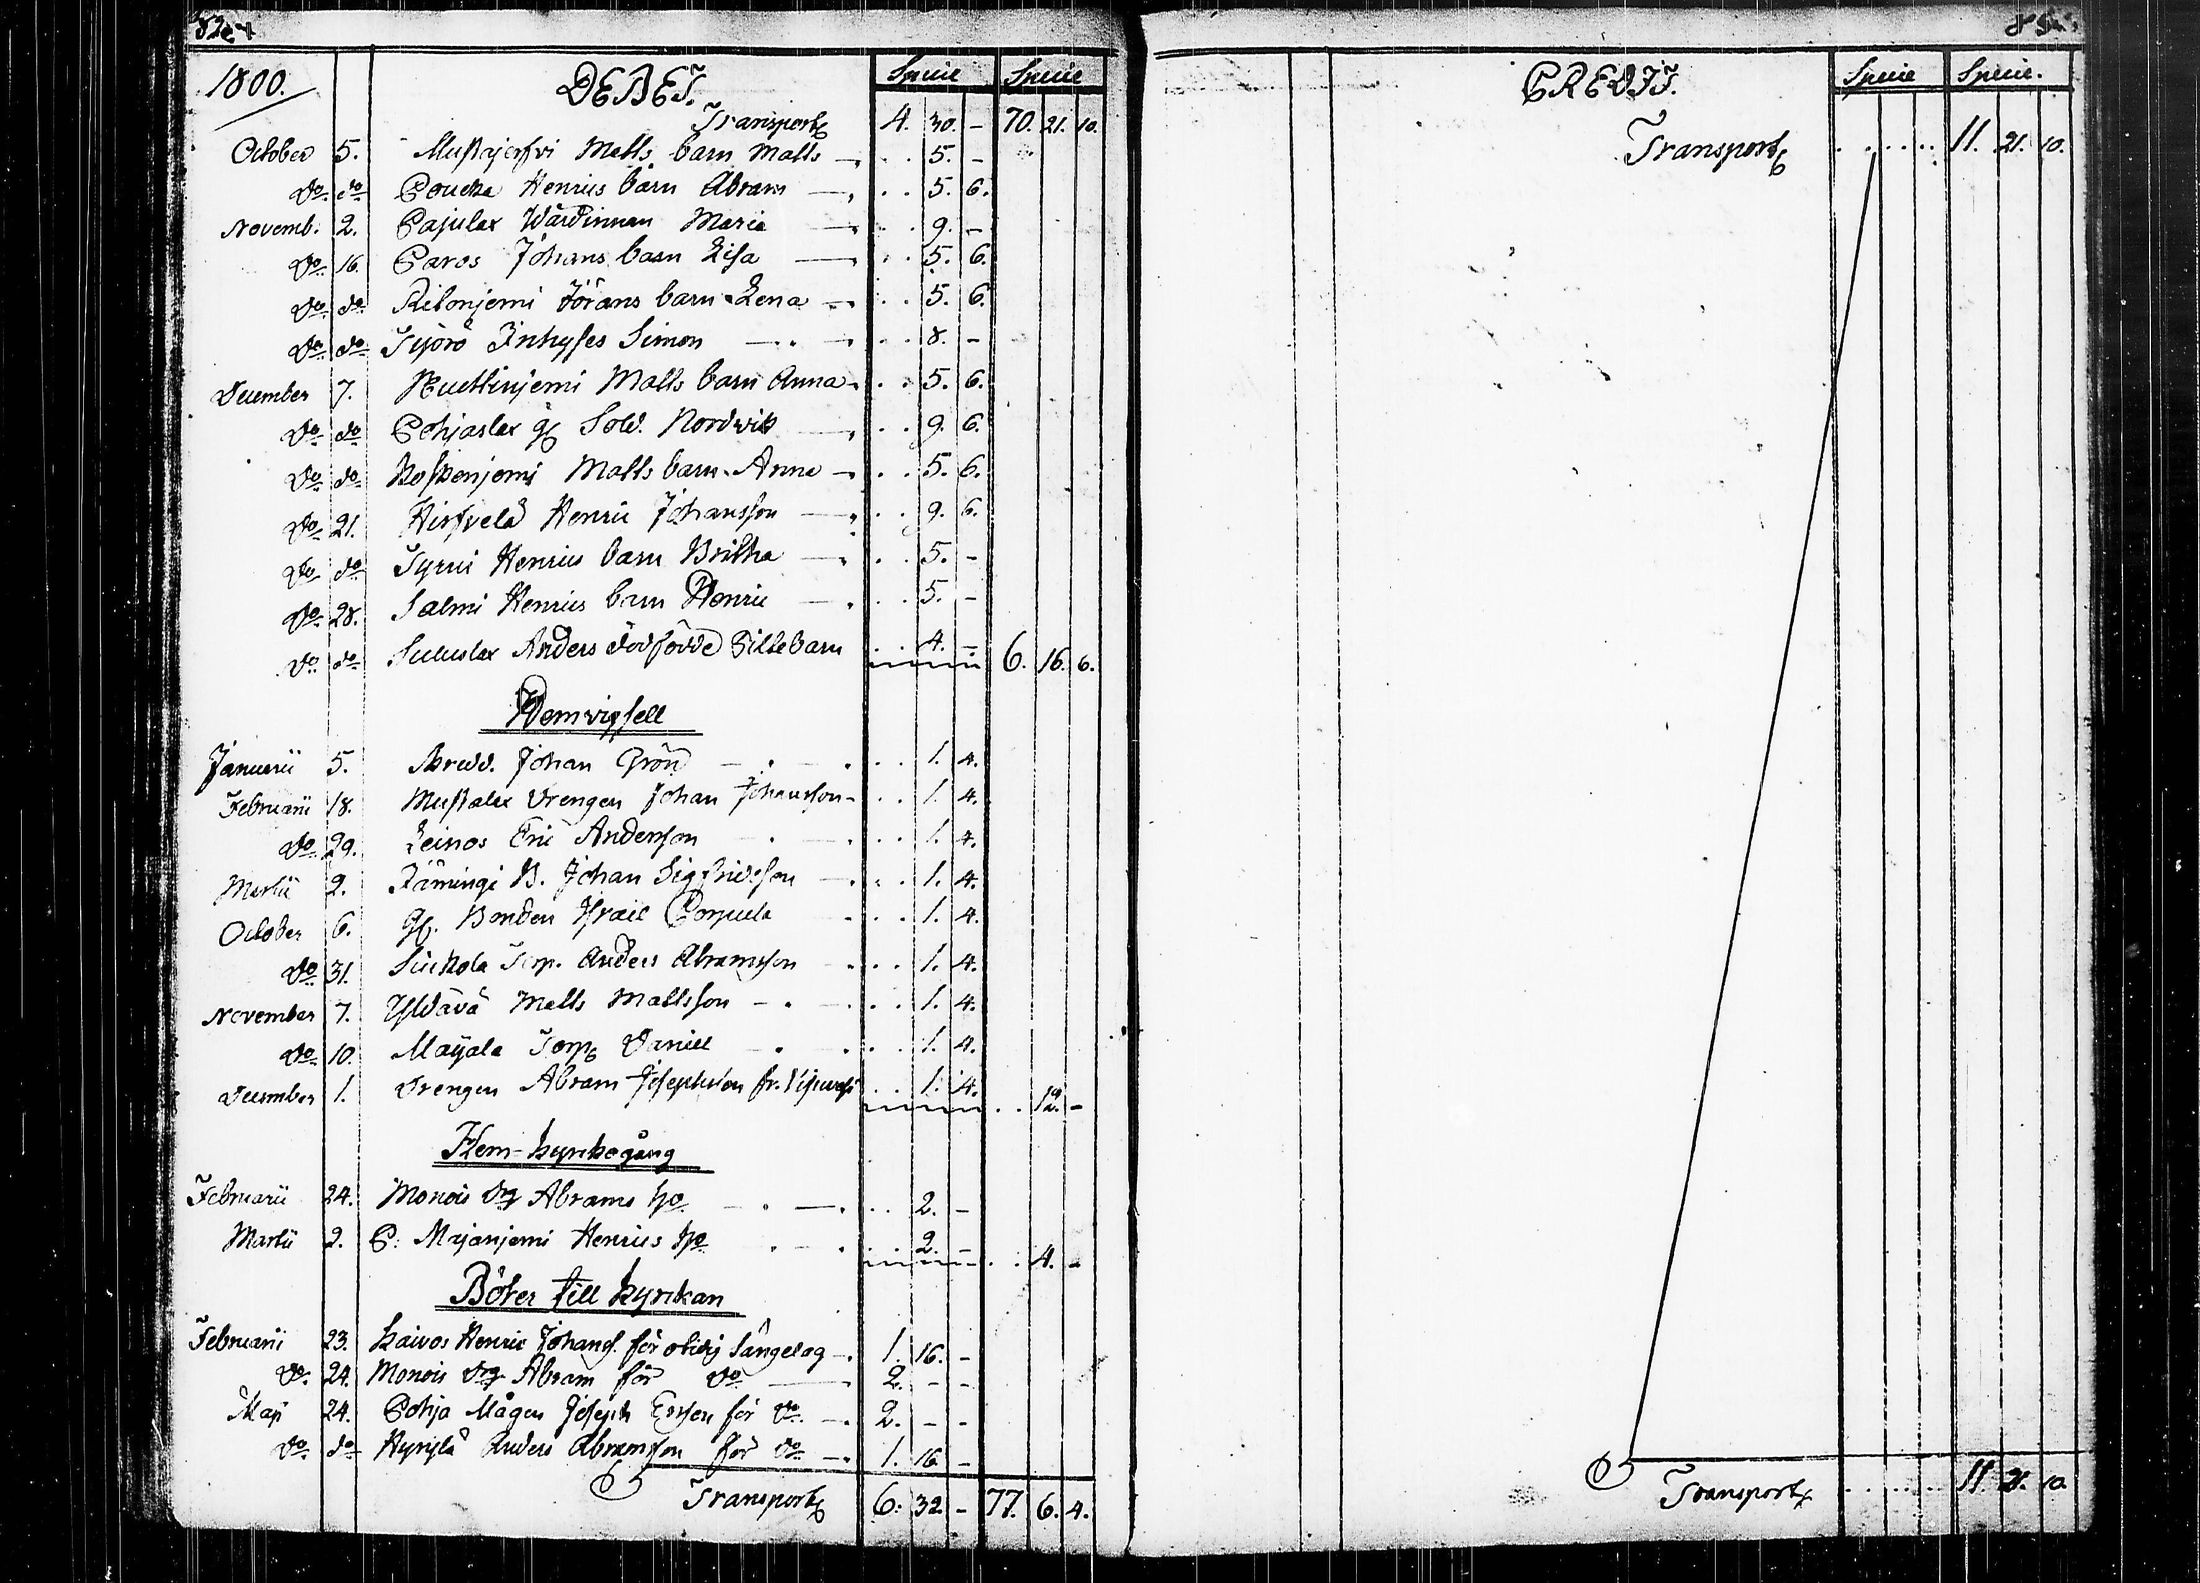 1800. DEBET. Specie Specie
Transport 4. 30. - 70. 21. 10.
October 5. Mustajerfvi Matts barn Matts . . 5. -
Do do Poucka Henrics barn Abram . . 5. 6.
Novemb. 2. Pajulax Wärdinnan Maria . . 9. -
Do 16. Paros Johans barn Lisa . . 5. 6.
Do do Ritoniemi Jörans barn Lena . . 5. 6.
Do do Inhyses Simon . . 8. -
December 7. Matts barn Anna . . 5. 6.
Do do Pohjaslax gl Sold. Nordvik . . 9. 6.
Do do Koskenjemi Matts barn Anna . . 5. 6.
Do 21. Hirfvelä Henric Johansson . . 9. 6.
Do do Tyrni Henrics barn Britha . . 5. -
Do 28. Salmi Henrics barn Henric . . 5. -
Do do Anders dödfödde Gillebarn . . 4. - 6. 16. 6.
Hemvigsell
Januarii 5. Johan Grön . . 1. 4.
Februarii 18. Mustalax Drengen Johan Johansson . . 1. 4.
Do 29. Leinos Eric Andersson . . 1. 4.
Martii 2. Jämingi B. Johan Sigfridsson . . 1. 4.
October 6. gl. Bonden Israel . . 1. 4.
Do 31. Torp. Anders Abramsson . . 1. 4.
November 7. Matts Mattsson . . 1. 4.
Do 10. Maijala Torp Daniel . . 1. 4.
December 1. Drengen Abram Josephsson fr. . . 1. 4. . . 12. -
Hem-kyrkogång
Februarii 24. Monois drg Abrams ho . . 2. -
Martii 2. P: Majanjemi Henrics ho . . 2. - . . 4. -
Böter till kyrkan
Februarii 23. Kaivos Henric Johans. för otidig Sängelag 1. 16. -
Do. 24. Monois drg Abram för Do 2. - -
Maji 24. Pohja Mågen Joseph Ersson för Do. 2. - -
Do do Hyrylä Anders Abramsson för Do 1. 16 -
Transport 6. 32. - 77. 6. 4.
CREDIT. Specie Specie.
Transport . . . . . . 11. 21. 10.
Transport . . . . . . . 11. 21. 10.